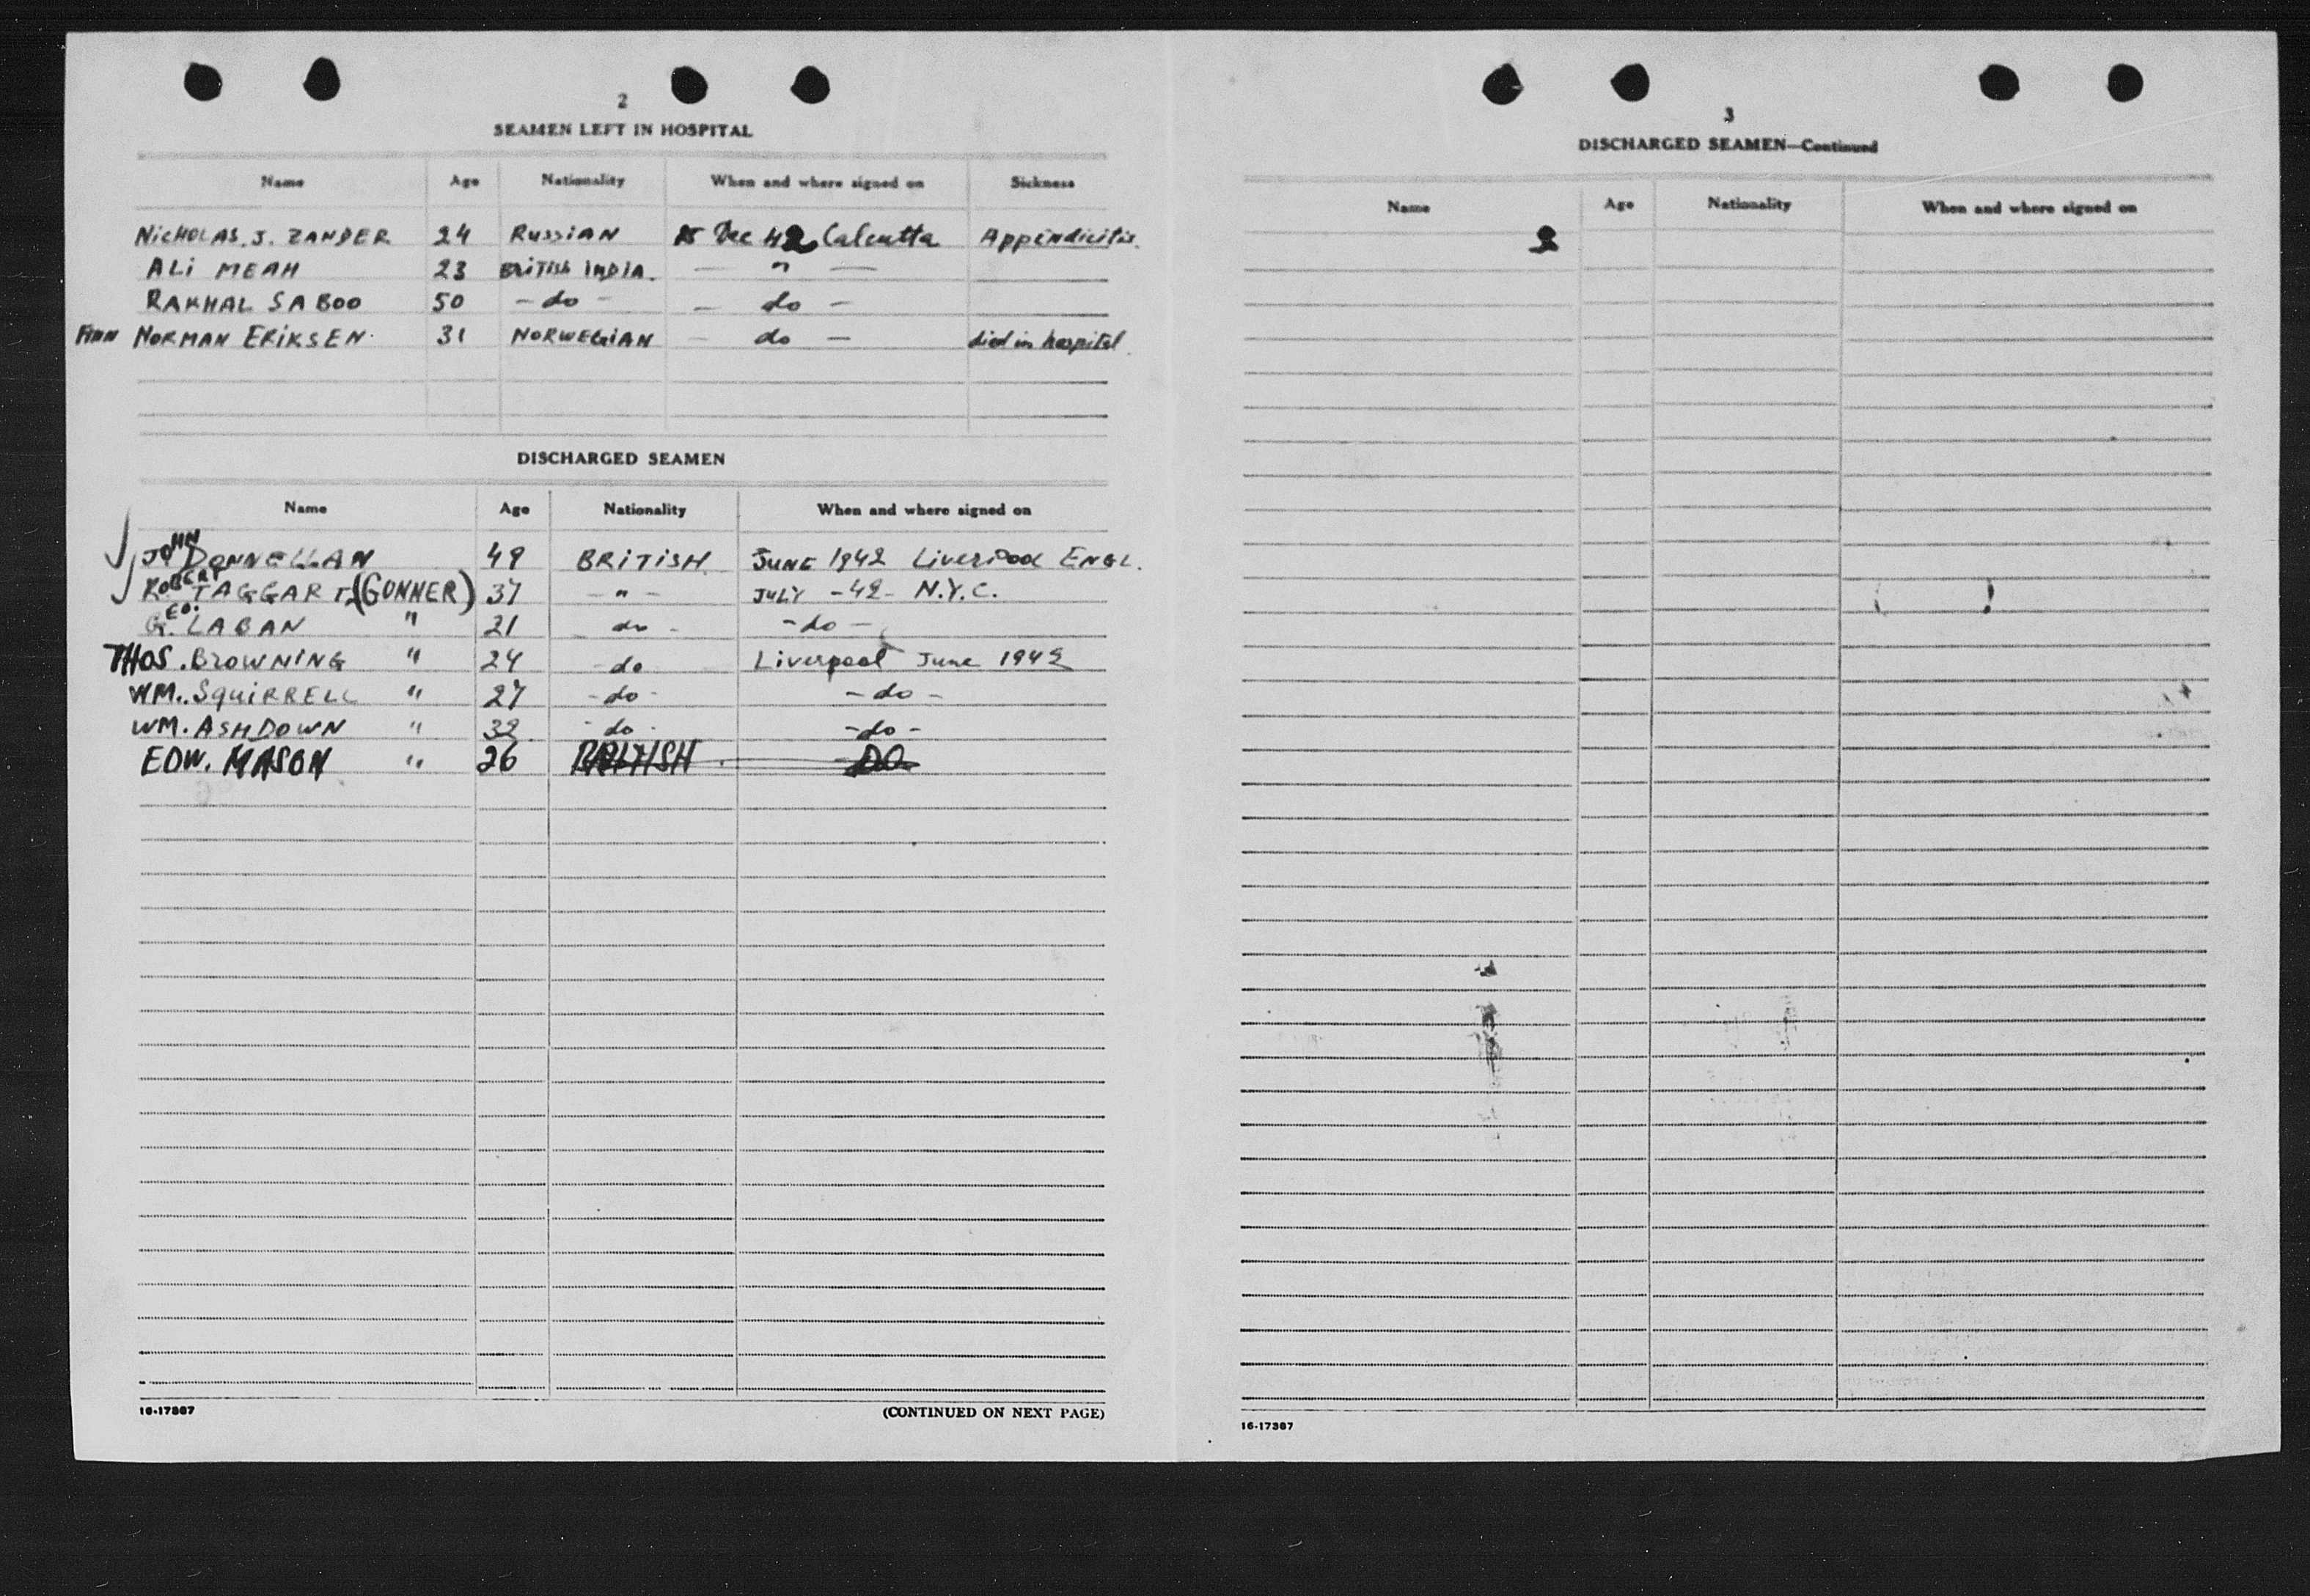 2
SEAMEN LEFT IN HOSPITAL
Name Age Nationality When and where signed on Sickness
NICHOLAS. J. ZANDER 24 RUSSIAN 15 Dec 42 Calcutta Appendicitis.
ALI MEAH 23 BRITISH INDIA. — " —
RAKHAL SABOO 50 - do - — do -
FINN NORMAN ERIKSEN. 31 NORWEGIAN — do — died in hospital.
DISCHARGED SEAMEN
Name Age Nationality When and where signed on
JOHN DONNELLAN 49 BRITISH. JUNE 1942 Liverpool ENGL.
ROBERT TAGGART (GUNNER) 37 - " - JULY -42- N.Y.C.
GEO. LABAN " 21 do - - do -
THOS. BROWNING " 24 do Liverpool June 1942
WM. SQUIRRELL " 27 - do - - do -
WM. ASHDOWN " 32 - do - - do -
EDW. MASON " 26 BRITISH DO
16-17387
(CONTINUED ON NEXT PAGE)
3
DISCHARGED SEAMEN—Continued
Name Age Nationality When and where signed on
2
16-17387